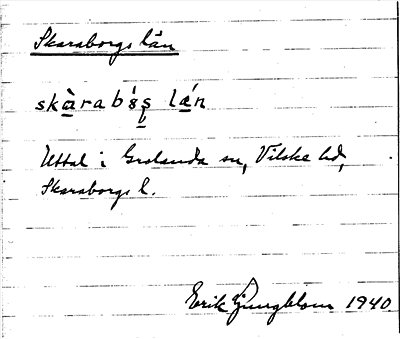 Skaraborgs län
skàrabɞ́ʂ lǽn
Uttal i Grolanda sn, Vilske hd,
Skaraborgs l.
Erik Ljungblom 1940